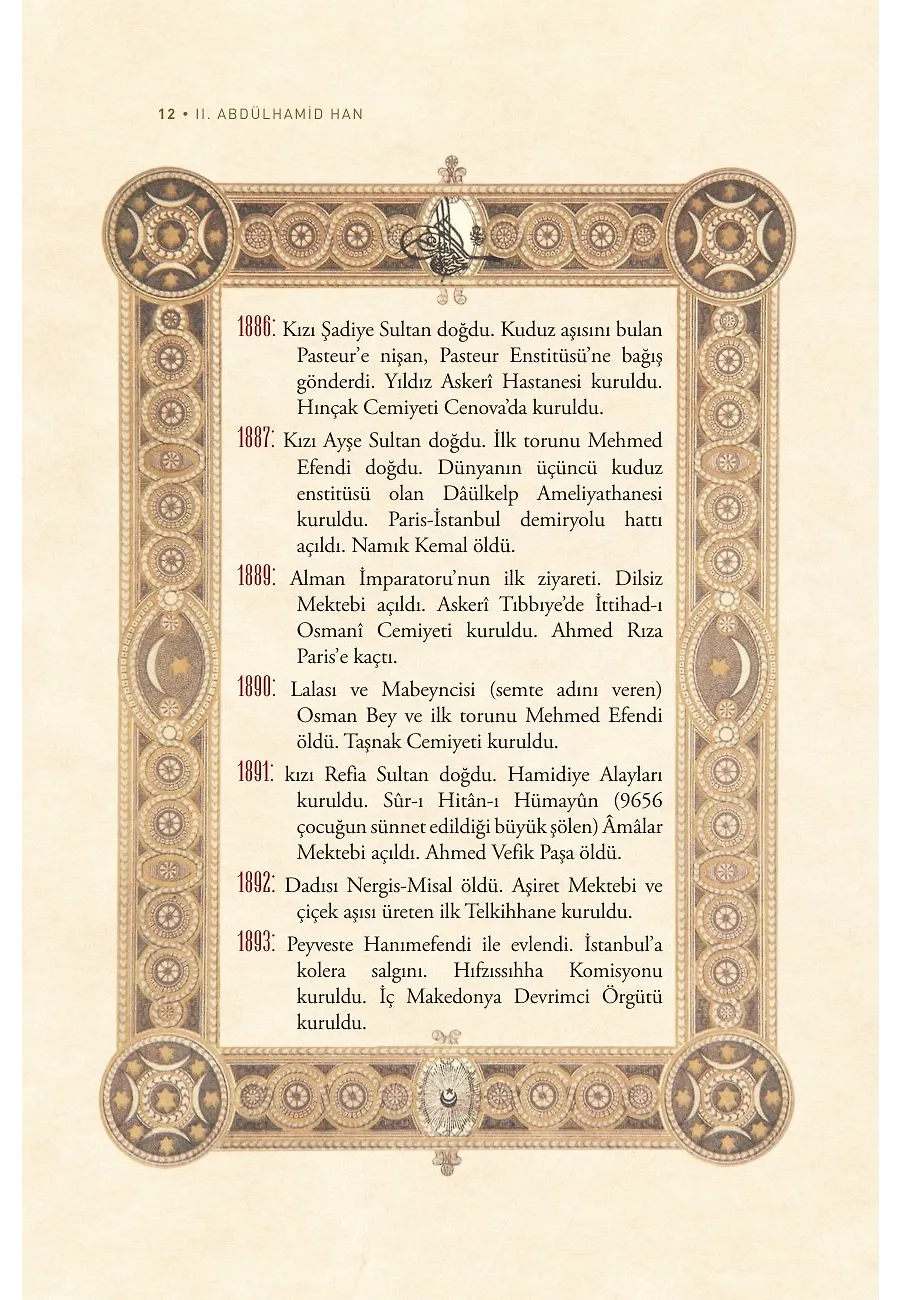 12 • II. ABDÜLHAMİD HAN
1886: Kızı Şadiye Sultan doğdu. Kuduz aşısını bulan
Pasteur’e nişan, Pasteur Enstitüsü’ne bağış
gönderdi. Yıldız Askerî Hastanesi kuruldu.
Hınçak Cemiyeti Cenova’da kuruldu.
1887: Kızı Ayşe Sultan doğdu. İlk torunu Mehmed
Efendi doğdu. Dünyanın üçüncü kuduz
enstitüsü olan Dâülkelp Ameliyathanesi
kuruldu. Paris-İstanbul demiryolu hattı
açıldı. Namık Kemal öldü.
1889: Alman İmparatoru’nun ilk ziyareti. Dilsiz
Mektebi açıldı. Askerî Tıbbıye’de İttihad-ı
Osmanî Cemiyeti kuruldu. Ahmed Rıza
Paris’e kaçtı.
1890: Lalası ve Mabeyncisi (semte adını veren)
Osman Bey ve ilk torunu Mehmed Efendi
öldü. Taşnak Cemiyeti kuruldu.
1891: kızı Refia Sultan doğdu. Hamidiye Alayları
kuruldu. Sûr-ı Hitân-ı Hümayûn (9656
çocuğun sünnet edildiği büyük şölen) Âmâlar
Mektebi açıldı. Ahmed Vefik Paşa öldü.
1892: Dadısı Nergis-Misal öldü. Aşiret Mektebi ve
çiçek aşısı üreten ilk Telkihhane kuruldu.
1893: Peyveste Hanımefendi ile evlendi. İstanbul’a
kolera salgını. Hıfzıssıhha Komisyonu
kuruldu. İç Makedonya Devrimci Örgütü
kuruldu.